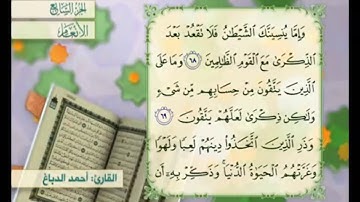 الجزء السابع
الأنعام
وَإِمَّا يُنسِيَنَّكَ الشَّيْطَانُ فَلَا تَقْعُدْ بَعْدَ
الذِّكْرَىٰ مَعَ الْقَوْمِ الظَّالِمِينَ ٦٨ وَمَا عَلَى
الَّذِينَ يَتَّقُونَ مِنْ حِسَابِهِم مِّن شَيْءٍ
وَلَٰكِن ذِكْرَىٰ لَعَلَّهُمْ يَتَّقُونَ ٦٩
وَذَرِ الَّذِينَ اتَّخَذُوا دِينَهُمْ لَعِبًا وَلَهْوًا
وَغَرَّتْهُمُ الْحَيَاةُ الدُّنْيَا وَذَكِّرْ بِهِ أَن
القارئ: أحمد الدباغ